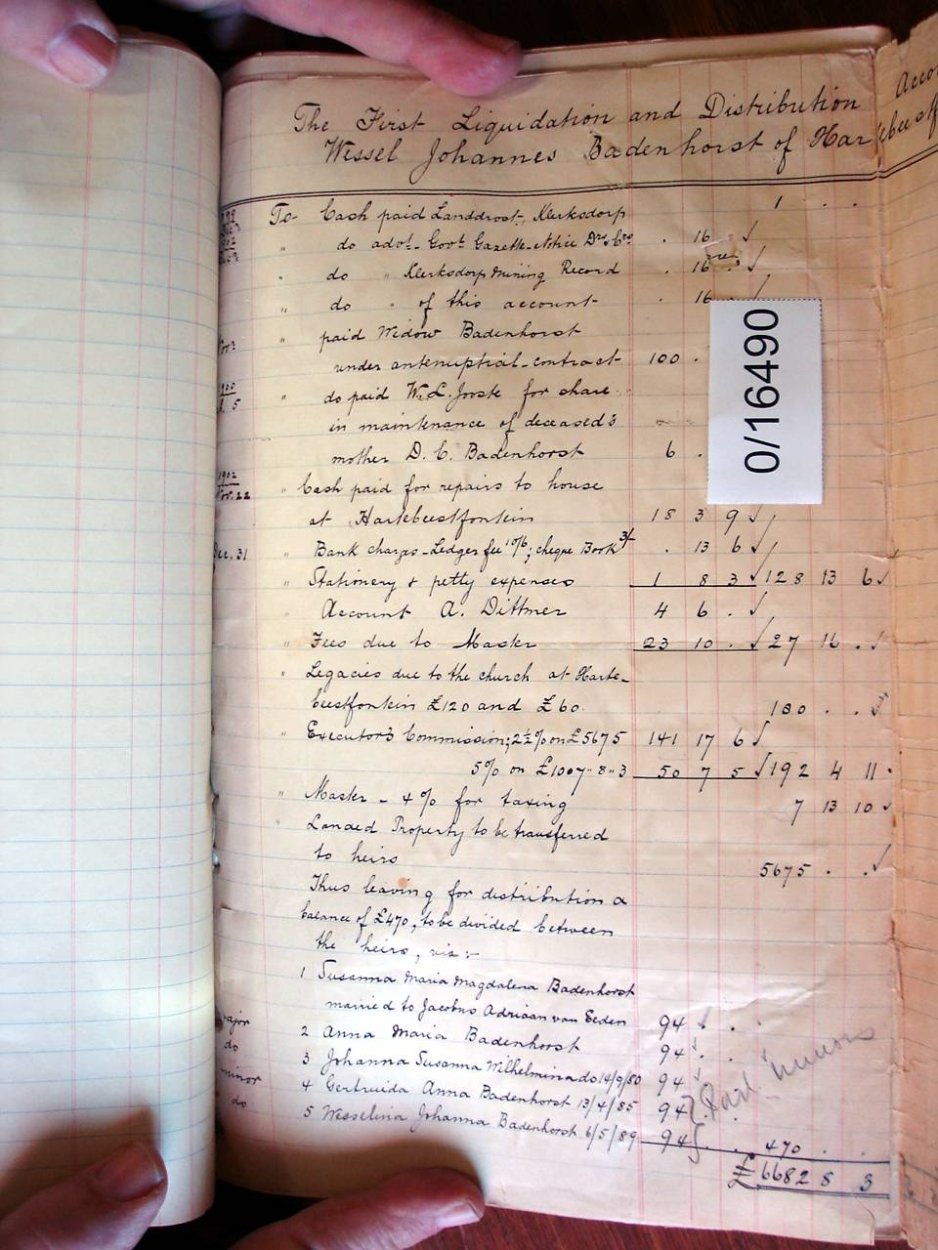 The First Liquidation and Distribution Acco
Wessel Johannes Badenhorst of Hartebeestf
To Cash paid Landdrost, Klerksdorp 1 . .
" do advt. Govt Gazette Notice Drs & Crs . 16 .
" do " Klerksdorp Mining Record . 16 .
" do " of this account . 16 .
" paid Widow Badenhorst
under antenuptial contract 100 .
" do paid W. L. Jooste for share
in maintenance of deceased's
mother D. C. Badenhorst 6 .
" Cash paid for repairs to house
at Hartebeestfontein 18 3 9
Dec. 31 " Bank charges - Ledger fee 10/6; cheque Book 3/- . 13 6
" Stationery & petty expenses 1 8 3 128 13 6
Account A. Dittmer 4 6 .
" Fees due to Master 23 10 . 27 16 .
" Legacies due to the church at Harte-
beestfontein £120 and £60. 180 . .
" Executor's Commission; 2½% on £5675 141 17 6
5% on £1007-8-3 50 7 5 192 4 11
" Master - 4% for taxing 7 13 10
" Landed Property to be transferred
to heirs 5675 . .
Thus leaving for distribution a
balance of £470, to be divided between
the heirs, viz:-
1 Susanna Maria Magdalena Badenhorst
married to Jacobus Adriaan van Eeden 94 . .
major 2 Anna Maria Badenhorst 94 . .
do 3 Johanna Susanna Wilhelmina do 14/9/80 94
minor 4 Gertruida Anna Badenhorst 13/4/85 94
do 5 Wesselina Johanna Badenhorst 6/5/89 94 . . 470 . .
£ 6682 8 3
0/16490